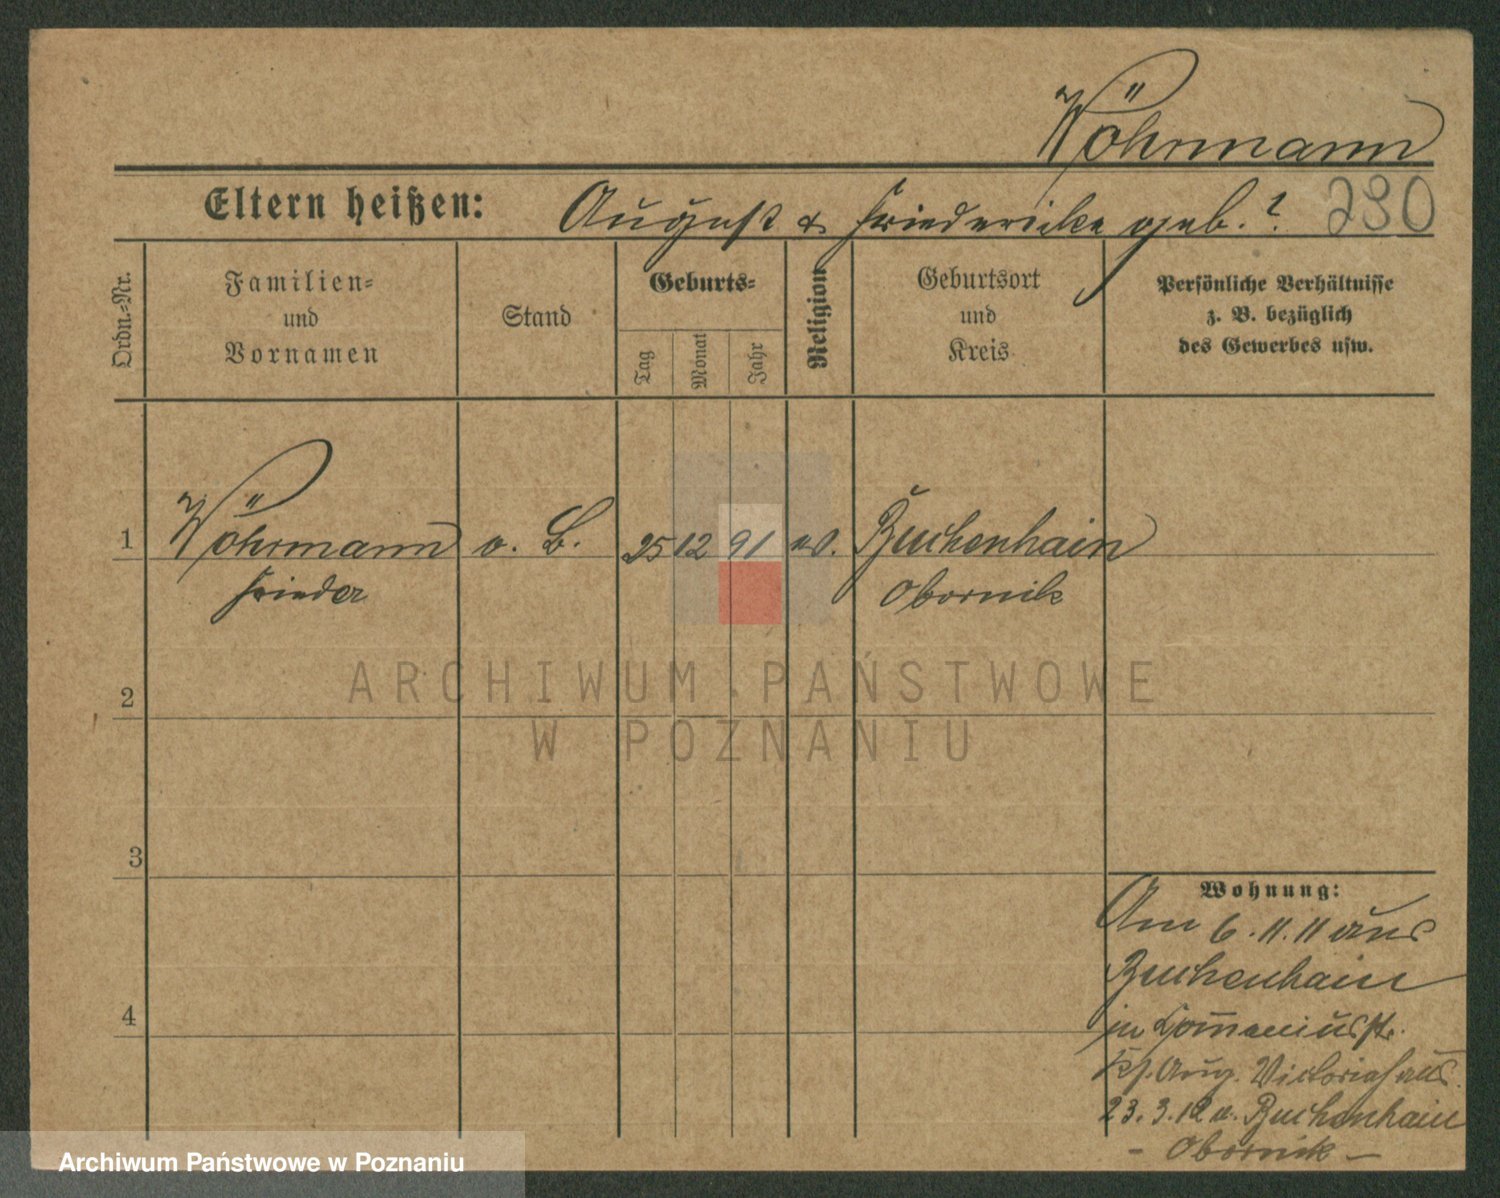 Wöhrmann
Eltern heißen: August & Friederike geb. ? 290
Ordn.-Nr.
Familien-
und
Vornamen
Stand
Geburts-
Tag
Monat
Jahr
Religion
Geburtsort
und
Kreis
Persönliche Verhältnisse
z. B. bezüglich
des Gewerbes usw.
1 Wöhrmann o. B. 25 12 91 ev. Buchenhain
Frieda Obornik
2
3
4
Wohnung:
Am 6.11.11 aus
Buchenhain
in Comeniusstr.
Aug. Victoriahaus
23.3.12 n. Buchenhain
- Obornik -
ARCHIWUM PAŃSTWOWE
W POZNANIU
Archiwum Państwowe w Poznaniu